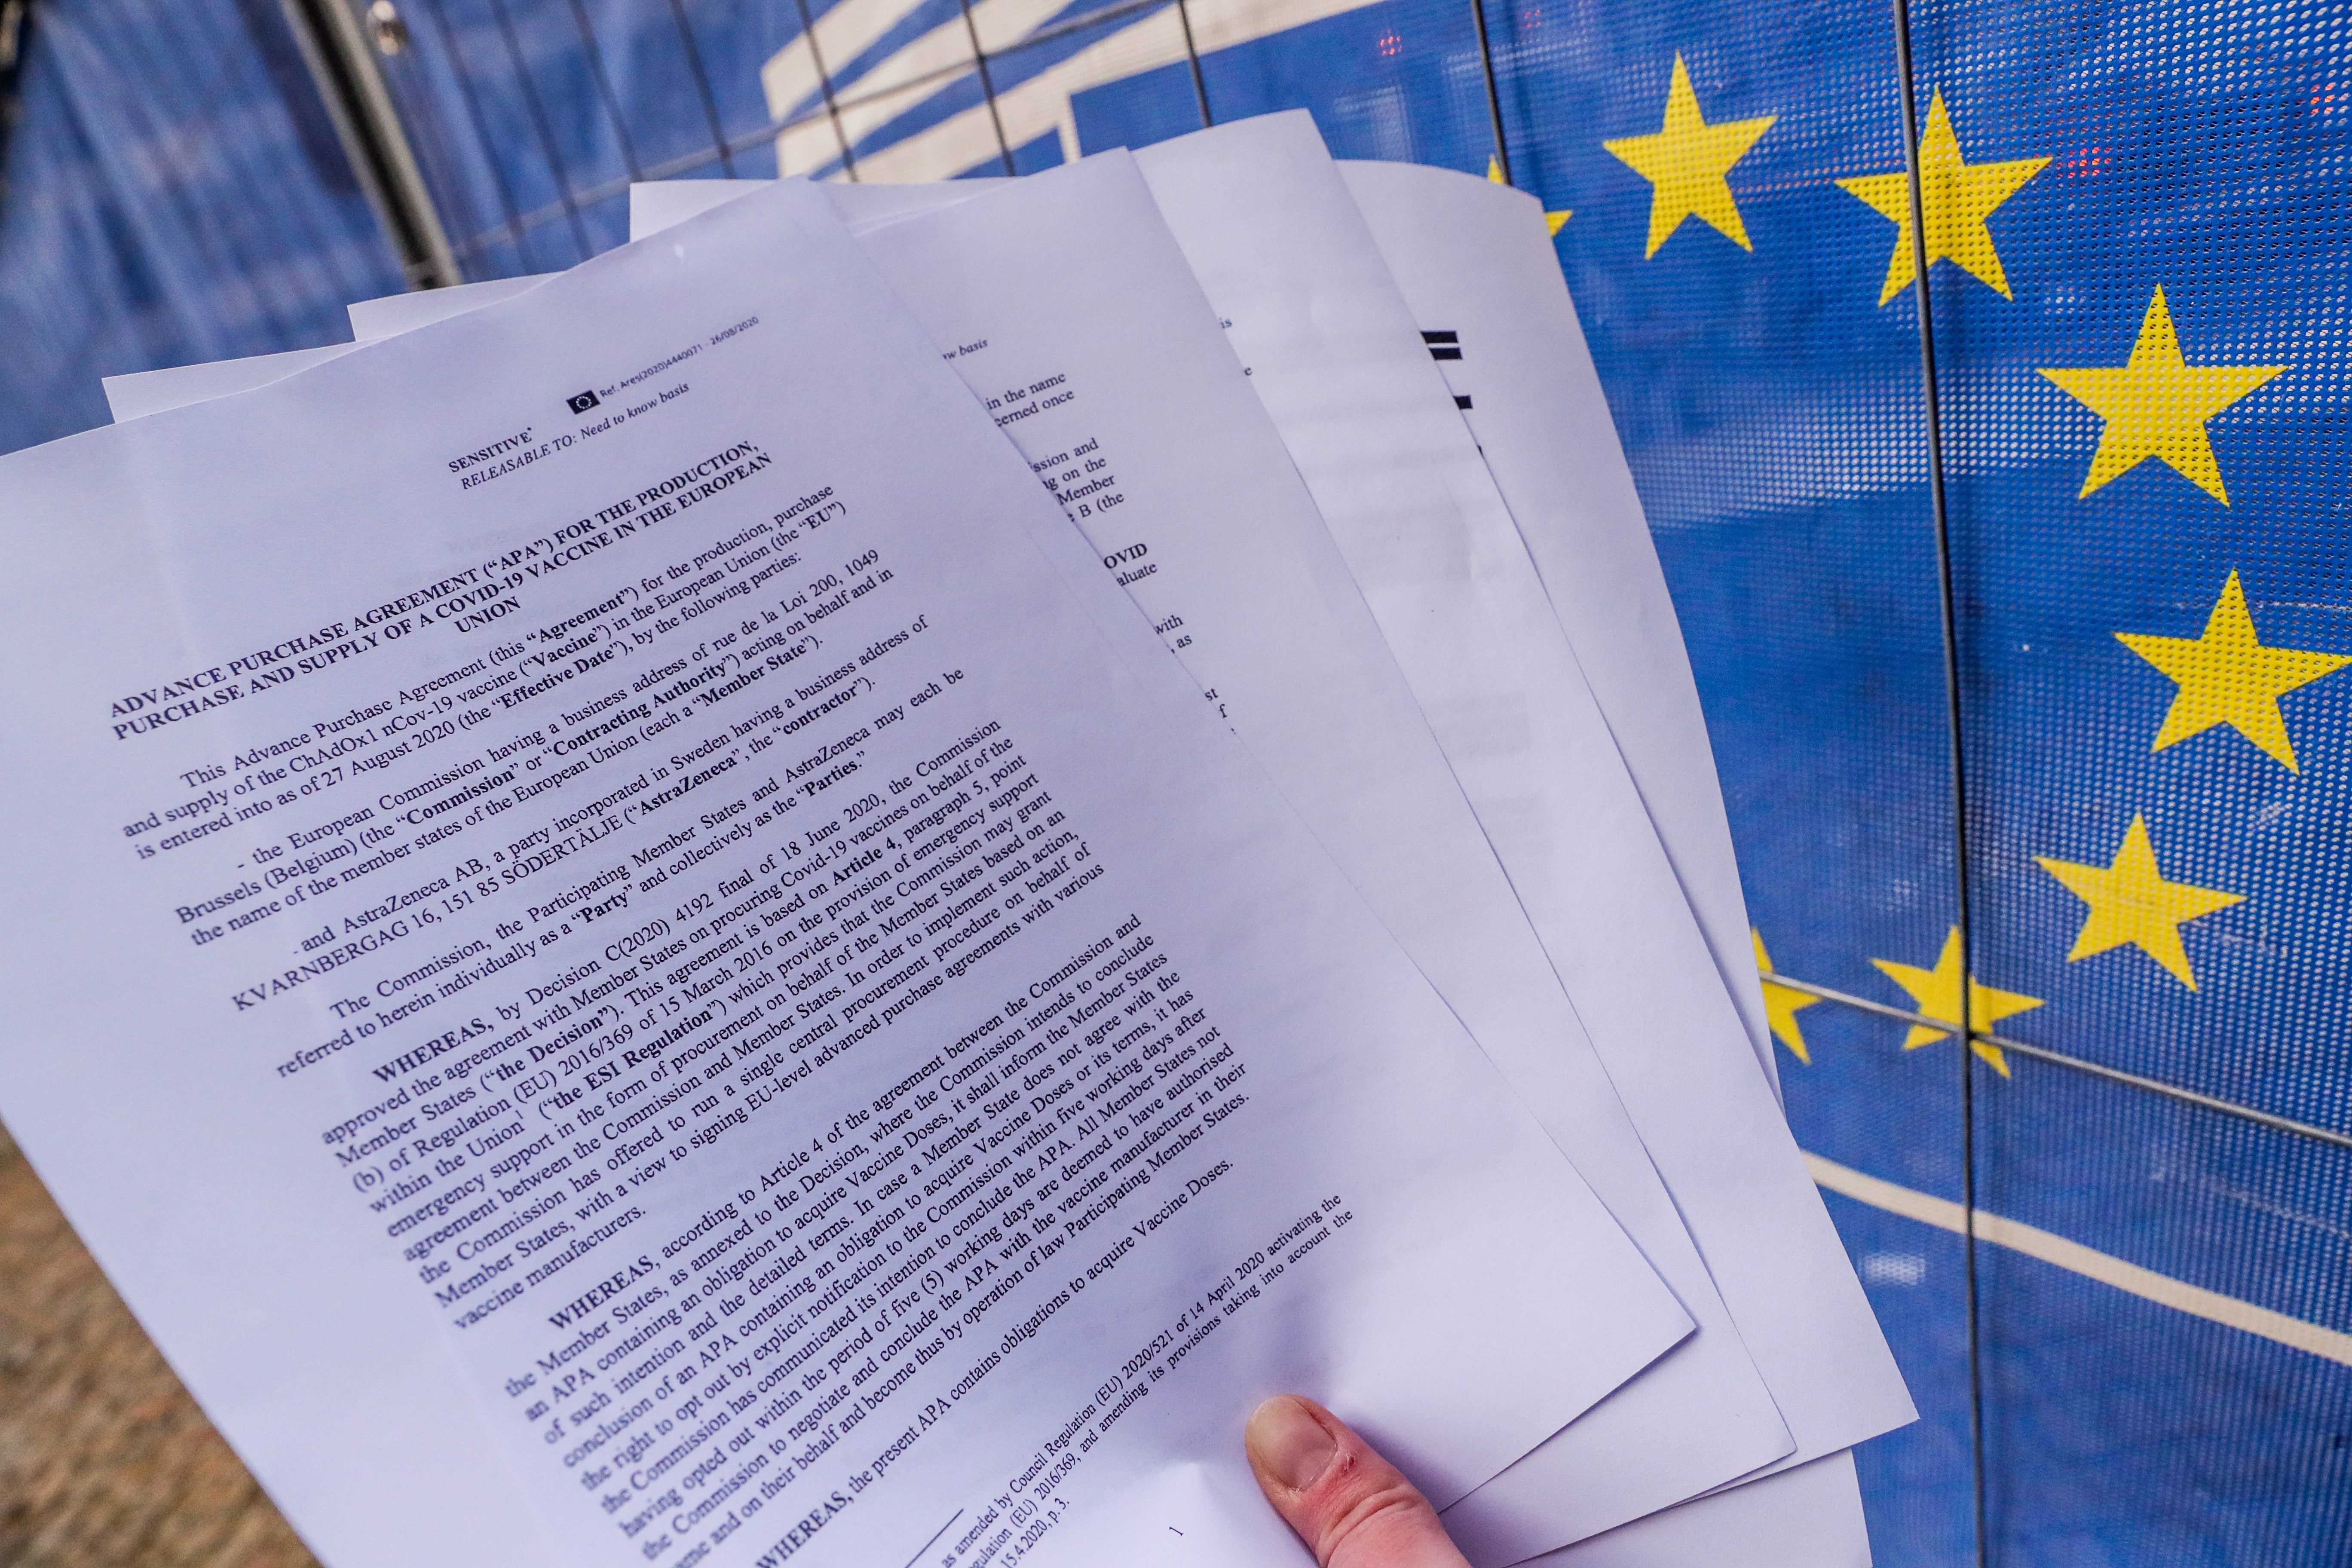 Ref. Ares(2020)4440071 - 26/08/2020
SENSITIVE*
RELEASABLE TO: Need to know basis
ADVANCE PURCHASE AGREEMENT (“APA”) FOR THE PRODUCTION,
PURCHASE AND SUPPLY OF A COVID-19 VACCINE IN THE EUROPEAN
UNION
This Advance Purchase Agreement (this “Agreement”) for the production, purchase
and supply of the ChAdOx1 nCov-19 vaccine (“Vaccine”) in the European Union (the “EU”)
is entered into as of 27 August 2020 (the “Effective Date”), by the following parties:
- the European Commission having a business address of rue de la Loi 200, 1049
Brussels (Belgium) (the “Commission” or “Contracting Authority”) acting on behalf and in
the name of the member states of the European Union (each a “Member State”).
- and AstraZeneca AB, a party incorporated in Sweden having a business address of
KVARNBERGAG 16, 151 85 SÖDERTÄLJE (“AstraZeneca”, the “contractor”).
The Commission, the Participating Member States and AstraZeneca may each be
referred to herein individually as a “Party” and collectively as the “Parties.”
WHEREAS, by Decision C(2020) 4192 final of 18 June 2020, the Commission
approved the agreement with Member States on procuring Covid-19 vaccines on behalf of the
Member States (“the Decision”). This agreement is based on Article 4, paragraph 5, point
(b) of Regulation (EU) 2016/369 of 15 March 2016 on the provision of emergency support
within the Union¹ (“the ESI Regulation”) which provides that the Commission may grant
emergency support in the form of procurement on behalf of the Member States based on an
agreement between the Commission and Member States. In order to implement such action,
the Commission has offered to run a single central procurement procedure on behalf of
Member States, with a view to signing EU-level advanced purchase agreements with various
vaccine manufacturers.
WHEREAS, according to Article 4 of the agreement between the Commission and
the Member States, as annexed to the Decision, where the Commission intends to conclude
an APA containing an obligation to acquire Vaccine Doses, it shall inform the Member States
of such intention and the detailed terms. In case a Member State does not agree with the
conclusion of an APA containing an obligation to acquire Vaccine Doses or its terms, it has
the right to opt out by explicit notification to the Commission within five working days after
the Commission has communicated its intention to conclude the APA. All Member States not
having opted out within the period of five (5) working days are deemed to have authorised
the Commission to negotiate and conclude the APA with the vaccine manufacturer in their
name and on their behalf and become thus by operation of law Participating Member States.
WHEREAS, the present APA contains obligations to acquire Vaccine Doses.
as amended by Council Regulation (EU) 2020/521 of 14 April 2020 activating the
Regulation (EU) 2016/369, and amending its provisions taking into account the
15.4.2020, p. 3.
1
basis
in the name
once
and
on the
Member
B (the
OVID
with
as
is